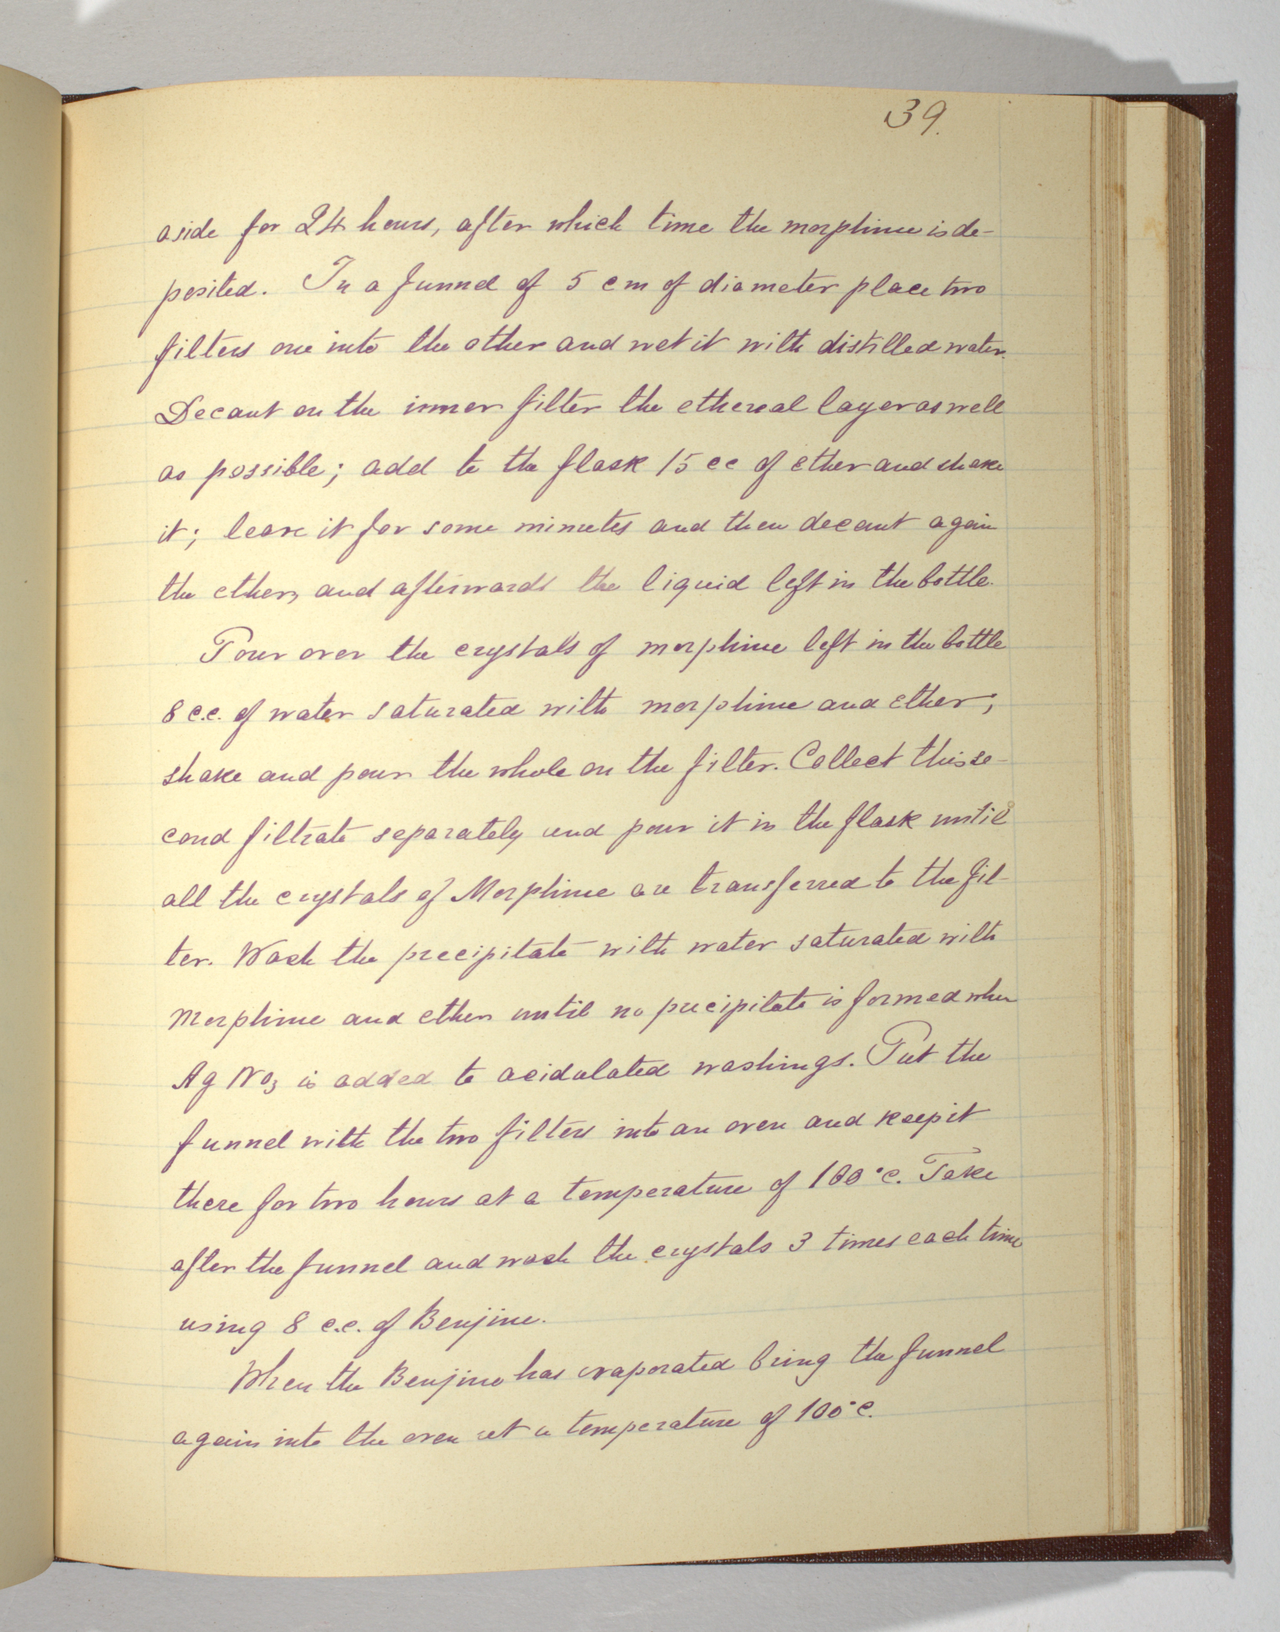 39.
aside for 24 hours, after which time the morphine is de-
posited. In a funnel of 5 cm of diameter place two
filters one into the other and wet it with distilled water.
Decant on the inner filter the ethereal layer as well
as possible; add to the flask 15 cc of ether and shake
it; leave it for some minutes and then decant again
the ether, and afterwards the liquid left in the bottle.
Pour over the crystals of morphine left in the bottle
8 c.c. of water saturated with morphine and ether;
shake and pour the whole on the filter. Collect this se-
cond filtrate separately and pour it in the flask until
all the crystals of Morphine are transferred to the fil-
ter. Wash the precipitate with water saturated with
Morphine and ether until no precipitate is formed when
Ag NO3 is added to acidulated washings. Put the
funnel with the two filters into an oven and keep it
there for two hours at a temperature of 100°C. Take
after the funnel and wash the crystals 3 times each time
using 8 c.c. of Benjine.
When the Benjine has evaporated bring the funnel
again into the oven at a temperature of 100°C.